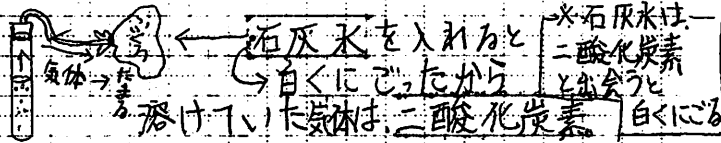 ふくろ
気体→たまる
石灰水を入れると
→白くにごったから
溶けていた気体は、二酸化炭素。
※石灰水は、
二酸化炭素
と出会うと
白くにごる